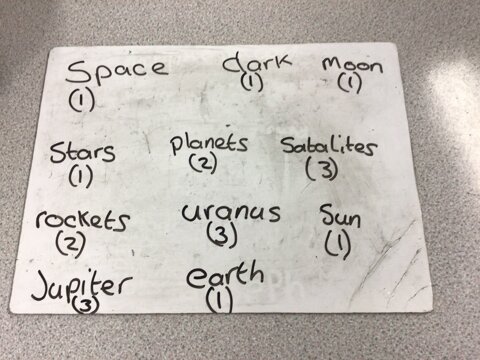 Space dark Moon
(1) (1) (1)
Stars planets Satalites
(1) (2) (3)
rockets uranus Sun
(2) (3) (1)
Jupiter earth
(3) (1)